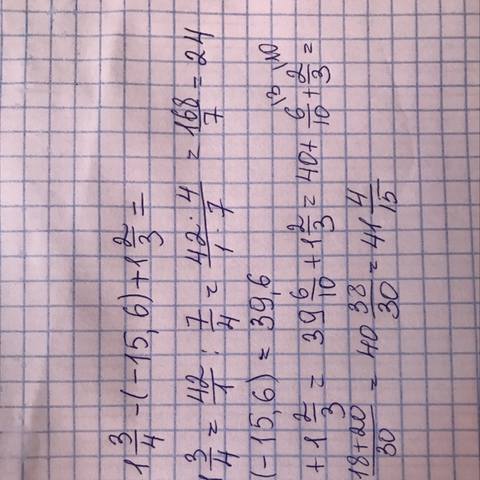 1 3/4 - (-15,6) + 1 2/3 =
1 3/4 = 42/1 : 7/4 = 42 · 4 / 1 · 7 = 168/7 = 24
(-15,6) = 39,6
+ 1 2/3 = 39 6/10 + 1 2/3 = 40 + 6/10 \3 + 2/3 \10 =
18+20/30 = 40 38/30 = 41 4/15